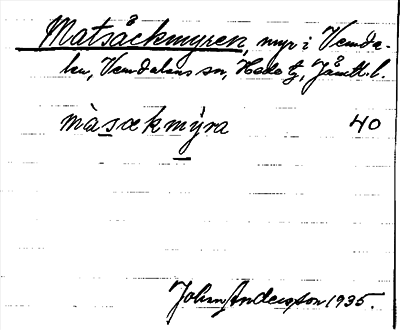 Matsäckmyren, myr i Vemda-
len, Vemdalens sn, Hede tg, Jämtl. l.
màsækmýra 40
John Andersson 1935.